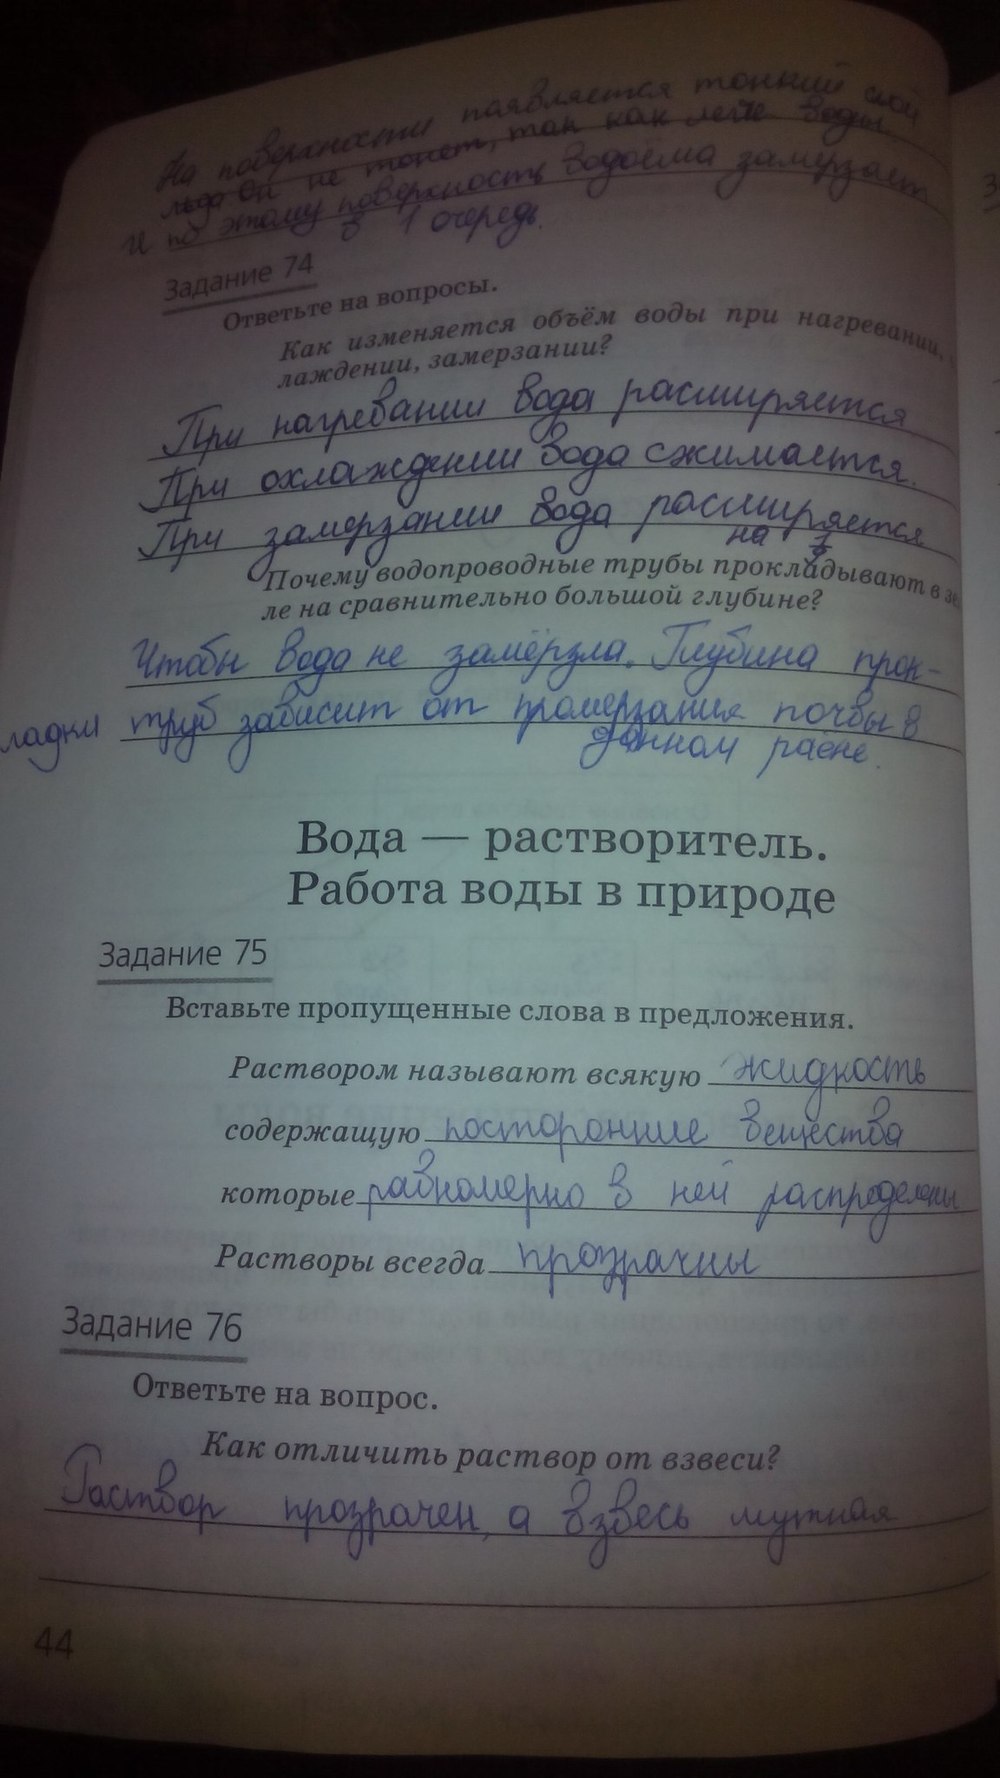 На поверхности паявляется тонкий слой
льда Он не тонет, так как легче воды.
И по этому поверхность водоёма замерзает
в 1 очередь.
Задание 74
Ответьте на вопросы.
Как изменяется объём воды при нагревании,
лаждении, замерзании?
При нагревании вода расширяется
При охлаждении вода сжимается.
При замерзании вода расширяется
на
Почему водопроводные трубы прокладывают в зе
ле на сравнительно большой глубине?
Чтобы вода не замёрзла. Глубина прок-
ладки труб зависит от промерзания почвы в
данном раёне.
Вода — растворитель.
Работа воды в природе
Задание 75
Вставьте пропущенные слова в предложения.
Раствором называют всякую жидкость
содержащую посторонние вещества
которые равномерно в ней распределены
Растворы всегда прозрачны
Задание 76
Ответьте на вопрос.
Как отличить раствор от взвеси?
Раствор прозрачен, а взвесь мутная
44